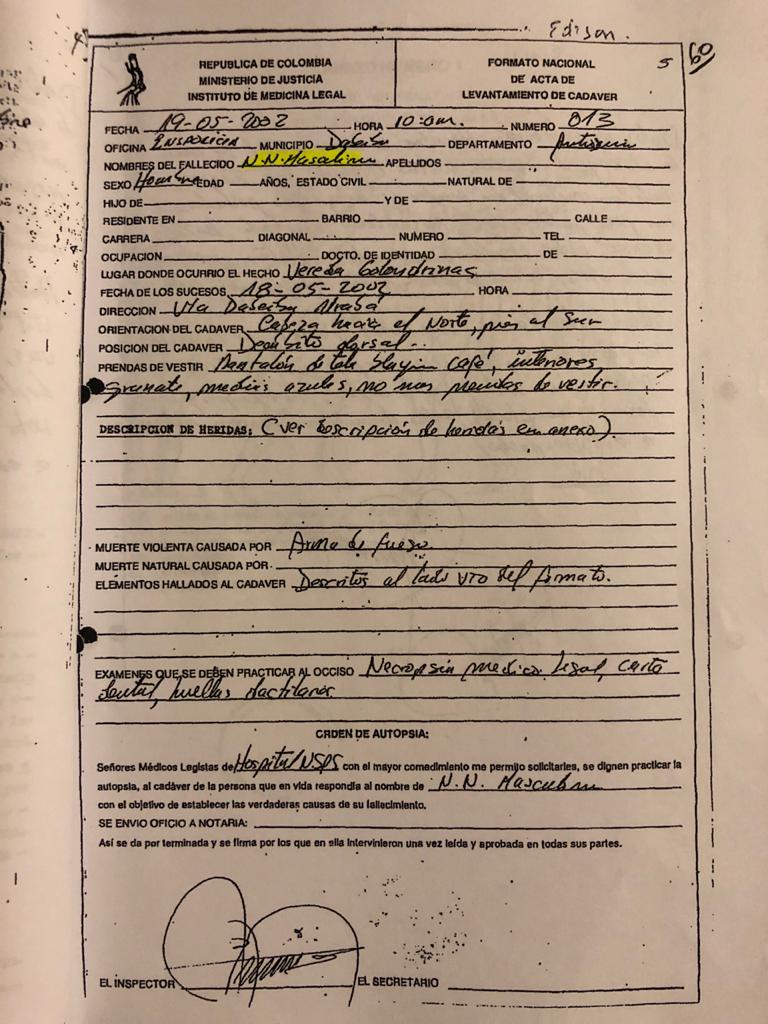 Edison.
5 60
REPUBLICA DE COLOMBIA
MINISTERIO DE JUSTICIA
INSTITUTO DE MEDICINA LEGAL
FORMATO NACIONAL
DE ACTA DE
LEVANTAMIENTO DE CADAVER
FECHA 19-05-2002 HORA 10:am. NUMERO 013
OFICINA INSPOLICIA MUNICIPIO Dabeiba DEPARTAMENTO Antioquia
NOMBRES DEL FALLECIDO N.N. Masculino APELLIDOS
SEXO Hombre EDAD AÑOS, ESTADO CIVIL NATURAL DE
HIJO DE Y DE
RESIDENTE EN BARRIO CALLE
CARRERA DIAGONAL NUMERO TEL.
OCUPACION DOCTO. DE IDENTIDAD DE
LUGAR DONDE OCURRIO EL HECHO Vereda Golondrinas
FECHA DE LOS SUCESOS 18-05-2002 HORA
DIRECCION Vía Dabeiba Uraba
ORIENTACION DEL CADAVER Cabeza hacia el Norte, pies al Sur
POSICION DEL CADAVER Decúbito dorsal.
PRENDAS DE VESTIR Pantalón de tela café, interiores
granate, medias azules, no mas prendas de vestir.
DESCRIPCION DE HERIDAS: (ver descripción de heridas en anexo).
MUERTE VIOLENTA CAUSADA POR Arma de fuego
MUERTE NATURAL CAUSADA POR
ELEMENTOS HALLADOS AL CADAVER Descritos al lado vto del formato.
EXAMENES QUE SE DEBEN PRACTICAR AL OCCISO Necropsia medico legal, carta
dental, huellas dactilares
ORDEN DE AUTOPSIA:
Señores Médicos Legistas de Hospital NSPS con el mayor comedimiento me permito solicitarles, se dignen practicar la
autopsia, al cadáver de la persona que en vida respondía al nombre de N.N. Masculino
con el objetivo de establecer las verdaderas causas de su fallecimiento.
SE ENVIO OFICIO A NOTARIA:
Así se da por terminada y se firma por los que en ella intervinieron una vez leída y aprobada en todas sus partes.
EL INSPECTOR EL SECRETARIO